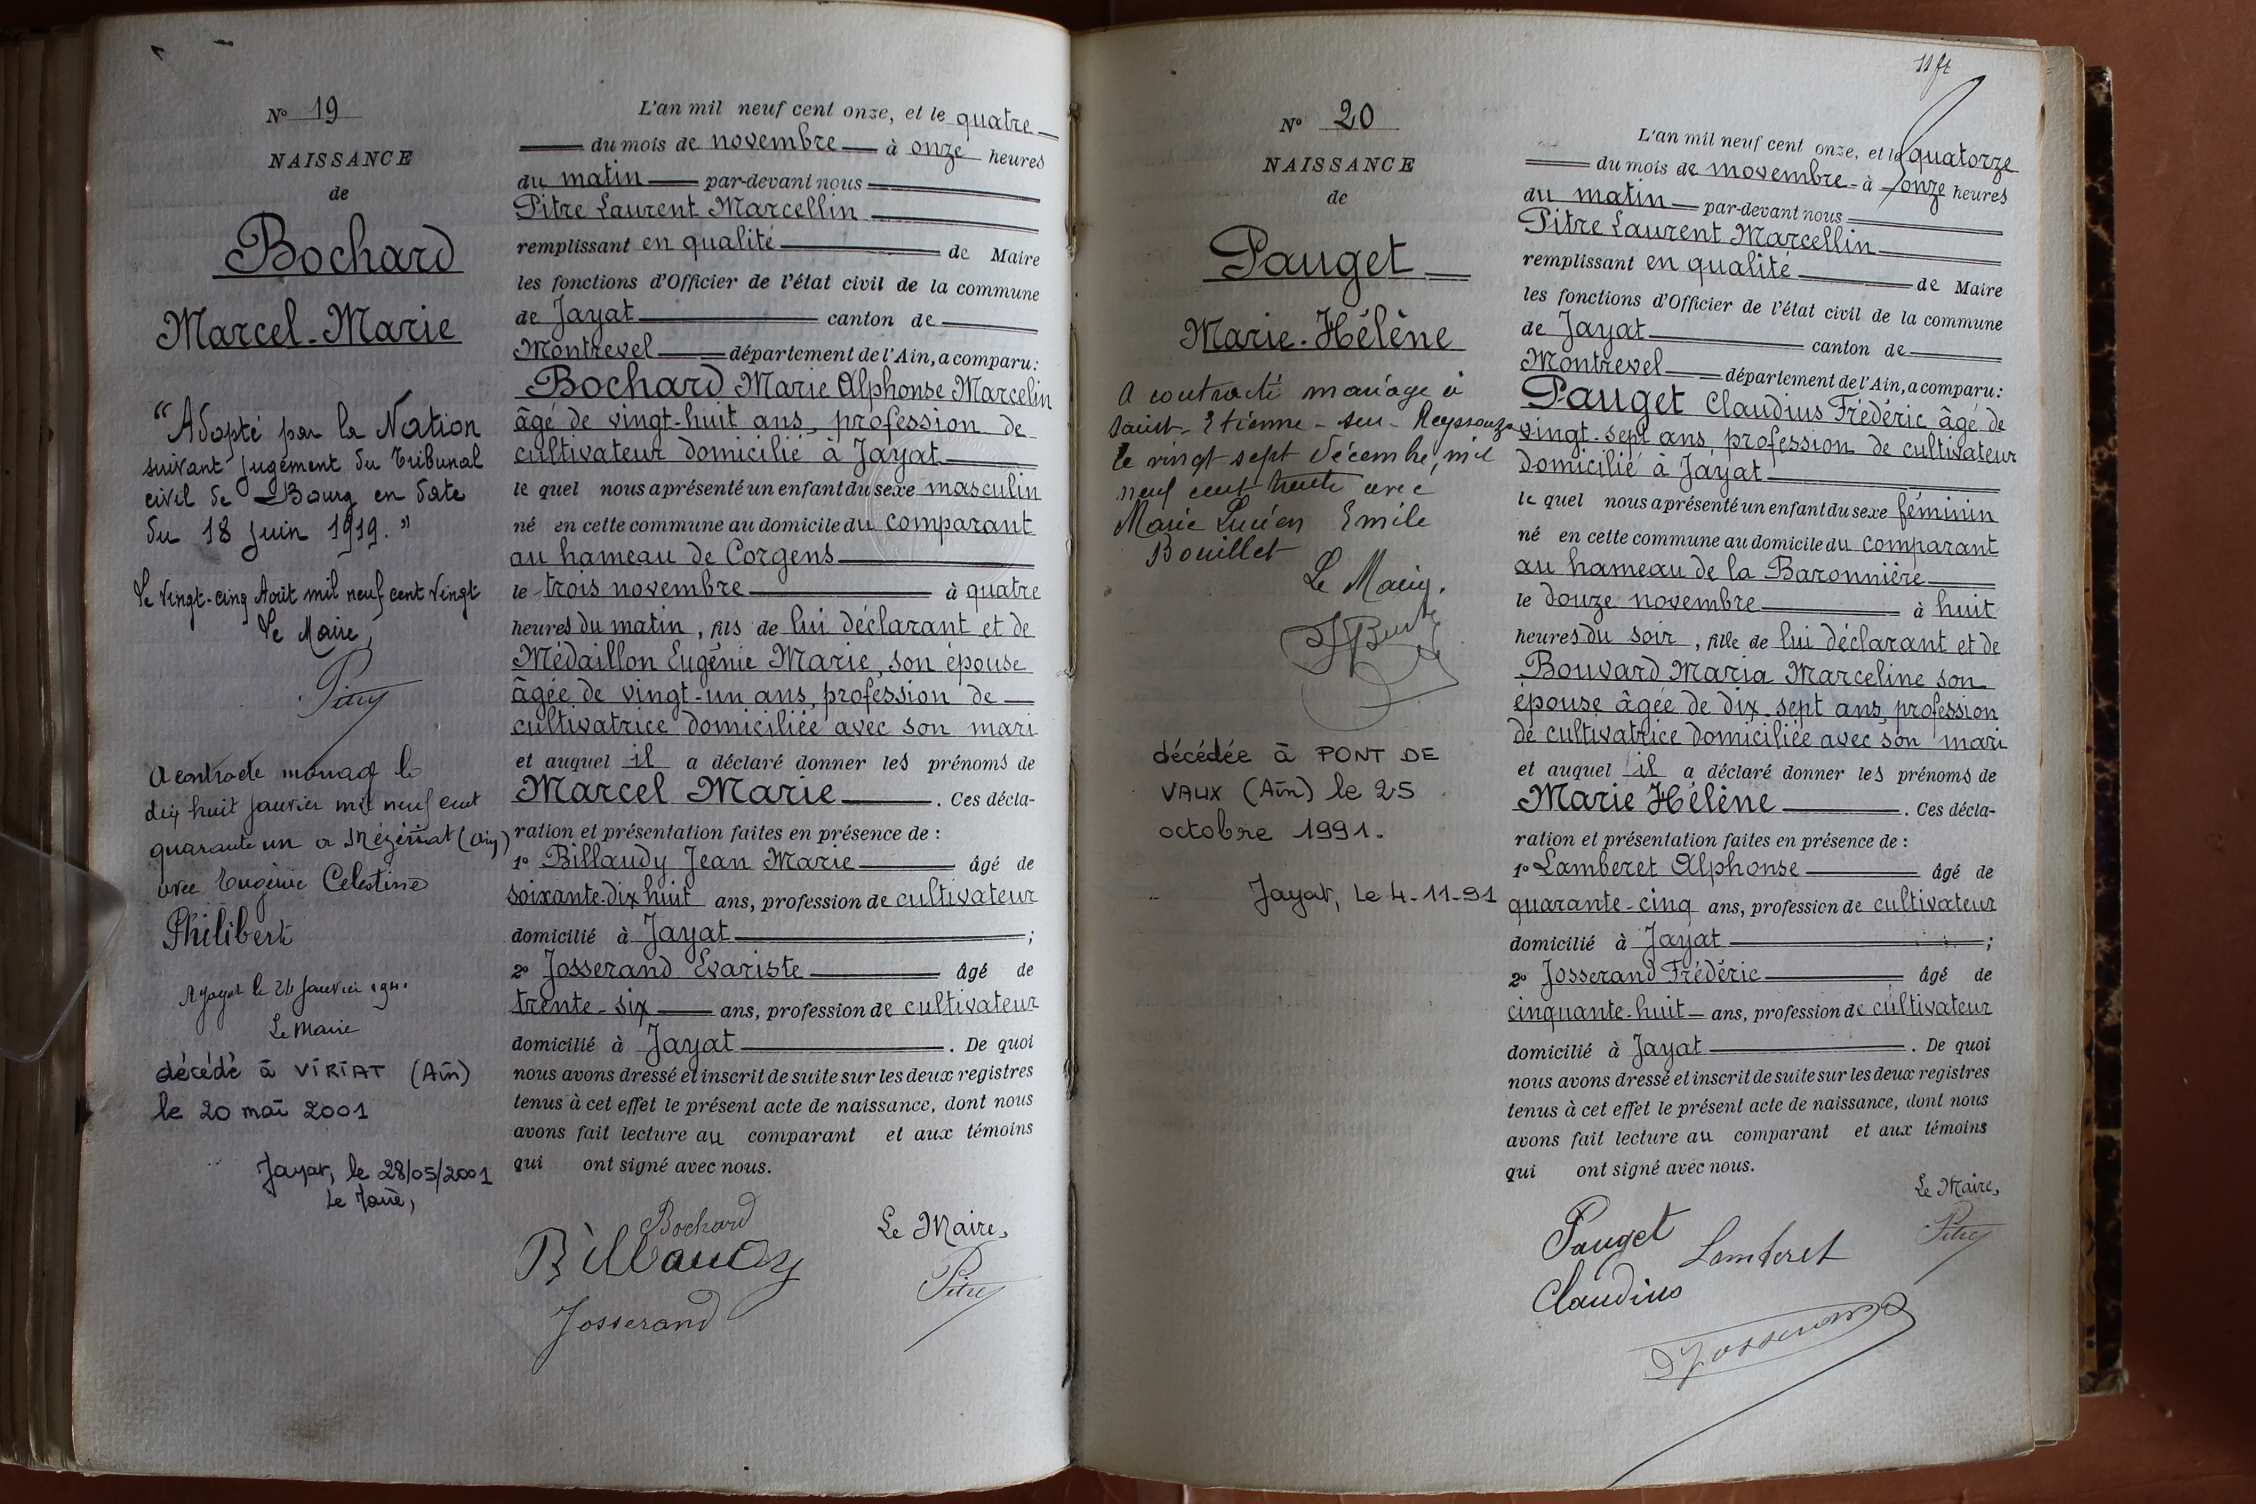 N° 19
NAISSANCE
de
Bochard
Marcel-Marie
"Adopté par la Nation
suivant jugement du Tribunal
civil de Bourg en date
du 18 juin 1919."
Le vingt-cinq Août mil neuf cent vingt
Le Maire,
Pitre
A contracté mariage le
dix huit janvier mil neuf cent
quarante un à Mézériat (Ain)
avec Eugénie Celestine
Philibert
A Jayat le 26 janvier 1941.
Le Maire
décédé à VIRIAT (Ain)
le 20 mai 2001
Jayat, le 28/05/2001
Le Maire,
L'an mil neuf cent onze, et le quatre
du mois de novembre à onze heures
du matin par-devant nous
Pitre Laurent Marcellin
remplissant en qualité de Maire
les fonctions d'Officier de l'état civil de la commune
de Jayat canton de
Montrevel département de l'Ain, a comparu:
Bochard Marie Alphonse Marcelin
âgé de vingt-huit ans, profession de
cultivateur domicilié à Jayat
le quel nous a présenté un enfant du sexe masculin
né en cette commune au domicile du comparant
au hameau de Corgens
le trois novembre à quatre
heures du matin, fils de lui déclarant et de
Médaillon Eugénie Marie, son épouse
âgée de vingt-un ans, profession de
cultivatrice domiciliée avec son mari
et auquel il a déclaré donner les prénoms de
Marcel Marie. Ces décla-
ration et présentation faites en présence de :
1° Billaudy Jean Marie âgé de
soixante-dix huit ans, profession de cultivateur
domicilié à Jayat ;
2° Josserand Evariste âgé de
trente-six ans, profession de cultivateur
domicilié à Jayat. De quoi
nous avons dressé et inscrit de suite sur les deux registres
tenus à cet effet le présent acte de naissance, dont nous
avons fait lecture au comparant et aux témoins
qui ont signé avec nous.
Bochard
Billaudy
Josserand
Le Maire,
Pitre
11 ft
N° 20
NAISSANCE
de
Pauget
Marie-Hélène
A contracté mariage à
Saint-Etienne-sur-Reyssouze
le vingt sept décembre, mil
neuf cent trente avec
Marie Lucien Emile
Bouillet
Le Maire.
décédée à PONT DE
VAUX (Ain) le 25
octobre 1991.
Jayat, Le 4-11-91
L'an mil neuf cent onze, et le quatorze
du mois de novembre à onze heures
du matin par-devant nous
Pitre Laurent Marcellin
remplissant en qualité de Maire
les fonctions d'Officier de l'état civil de la commune
de Jayat canton de
Montrevel département de l'Ain, a comparu:
Pauget Claudius Frédéric âgé de
vingt-sept ans, profession de cultivateur
domicilié à Jayat
le quel nous a présenté un enfant du sexe féminin
né en cette commune au domicile du comparant
au hameau de la Baronnière
le douze novembre à huit
heures du soir, fille de lui déclarant et de
Bouvard Maria Marceline son
épouse âgée de dix-sept ans, profession
de cultivatrice domiciliée avec son mari
et auquel il a déclaré donner les prénoms de
Marie Hélène. Ces décla-
ration et présentation faites en présence de :
1° Lamberet Alphonse âgé de
quarante-cinq ans, profession de cultivateur
domicilié à Jayat ;
2° Josserand Frédéric âgé de
cinquante-huit ans, profession de cultivateur
domicilié à Jayat. De quoi
nous avons dressé et inscrit de suite sur les deux registres
tenus à cet effet le présent acte de naissance, dont nous
avons fait lecture au comparant et aux témoins
qui ont signé avec nous.
Le Maire,
Pitre
Pauget
Claudius
Lamberet
Josserand